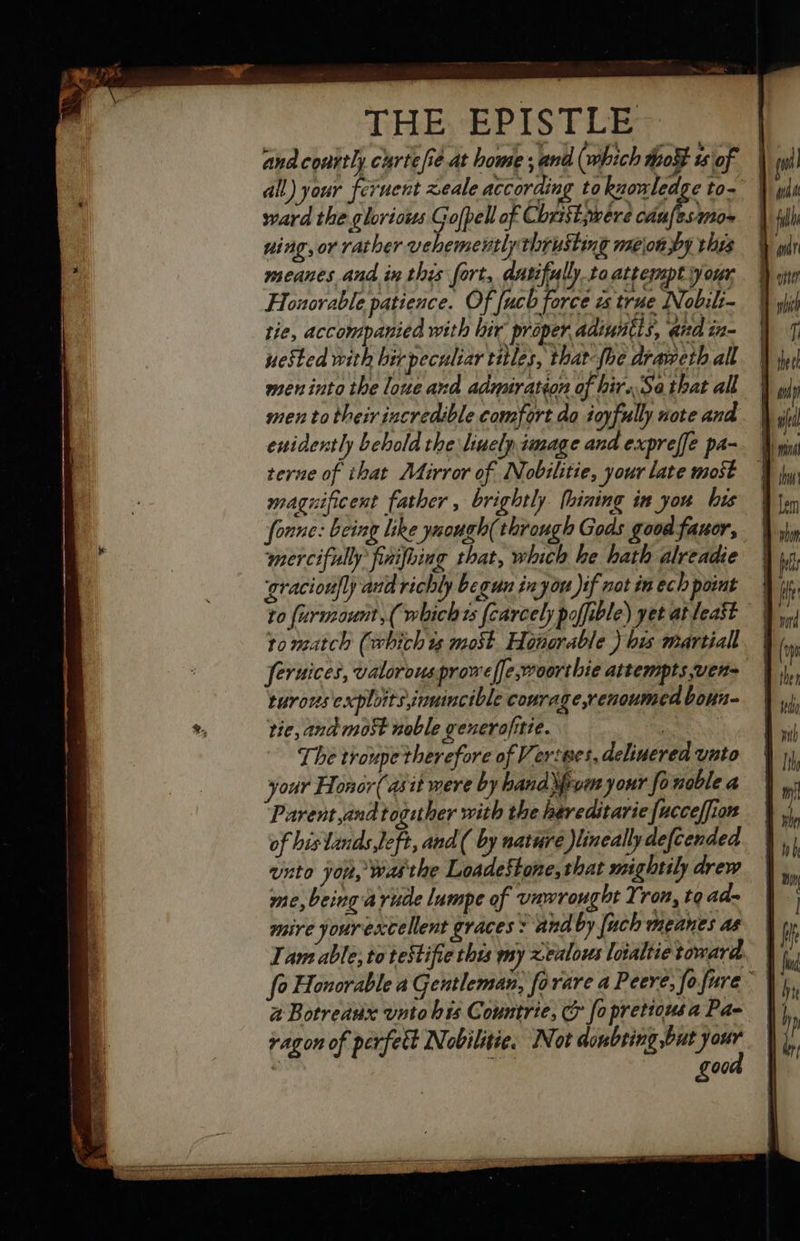 THE EPISTLE
and courtly curtesie at home ; and (which most is of
all) your feruent zeale according to knowledge to-
ward the glorious Gospell of Christ, were causes mo-
uing, or rather vehemently thrusting me on, by this
meanes and in this sort, dutifully to attempt your
Honorable patience. Of such force is true Nobili-
tie, accompanied with hir proper adiuncts, and in-
uested with hir peculiar titles, that she draweth all
men into the loue and admiration of hir. So that all
men to their incredible comfort do ioyfully note and
euidently behold the liuely image and expresse pa-
terne of that Mirror of Nobilitie, your late most
magnificent father, brightly shining in you his
sonne: being like ynough (through Gods good fauor,
mercifully finishing that, which he hath alreadie
graciously and richly begun in you) if not in ech point
to surmount, (which is scarcely possible) yet at least
to match (which is most Honorable) his martiall
seruices, valorous prowesse, woorthie attempts, ven-
turous exploits, inuincible courage, renoumed boun-
tie, and most noble generositie.
The troupe therefore of Vertues, deliuered vnto
your Honor (as it were by hand) from your so noble a
Parent, and togither with the hereditarie succession
of his lands left, and (by nature) lineally descended
vnto you, was the Loadestone, that mightily drew
me, being a rude lumpe of vnwrought Yron, to ad-
mire your excellent graces : and by such meanes as
I am able, to testifie this my zealous loialtie toward
so Honorable a Gentleman, so rare a Peere, so sure
a Botreaux vnto his Countrie, & so pretious a Pa-
ragon of perfect Nobilitie. Not doubting, but your
good